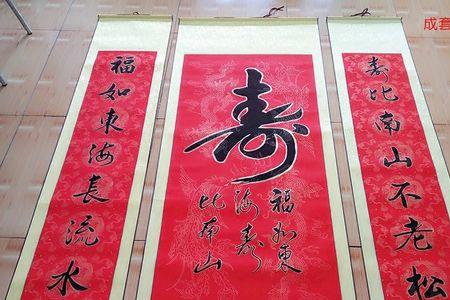 成套
寿比南山不老松
寿
福如東
海寿
比南山
福如東海長流水